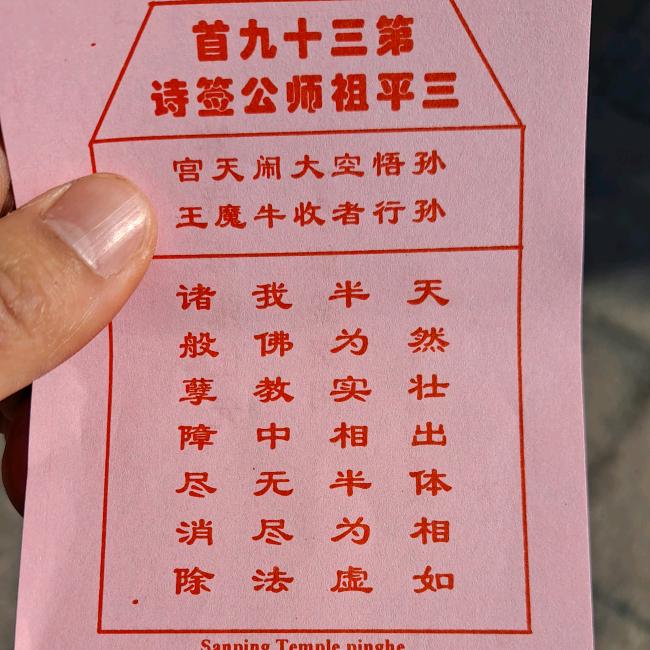 第三十九首
三平祖师公签诗
孙悟空大闹天宫
孙行者收牛魔王
天然壮出体相如
半为实相半为虚
我佛教中无尽法
诸般孽障尽消除
Sanping Temple pinghe